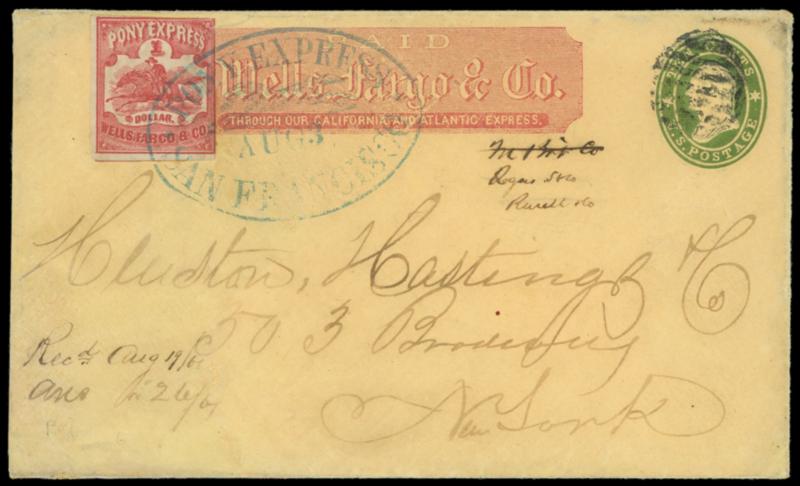 PONY EXPRESS
DOLLAR.
WELLS, FARGO & CO.
PAID
Wells, Fargo & Co.
THROUGH OUR CALIFORNIA AND ATLANTIC EXPRESS.
PONY EXPRESS
AUG 3
SAN FRANCISCO
TEN CENTS
U.S. POSTAGE
Heuston, Hastings & Co
503 Broadway
New York
Recd Aug 19/61
Ans " 26/61